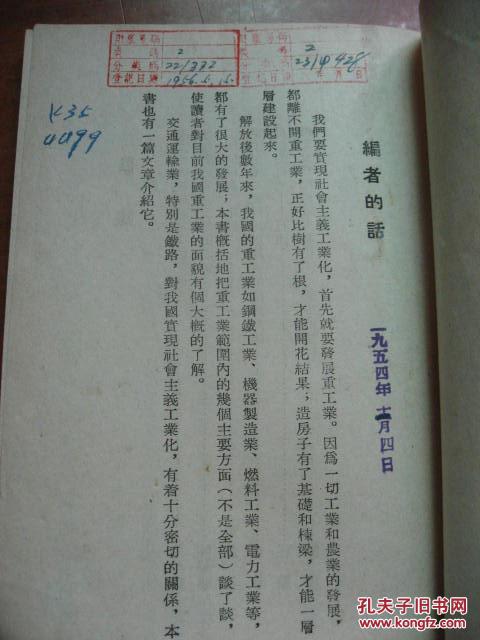 編者的話
我們要實現社會主義工業化，首先就要發展重工業。因爲一切工業和農業的發展，
都離不開重工業，正好比樹有了根，才能開花結果；造房子有了基礎和棟梁，才能一層
層建設起來。
解放後數年來，我國的重工業如鋼鐵工業、機器製造業、燃料工業、電力工業等，
都有了很大的發展；本書概括地把重工業範圍內的幾個主要方面（不是全部）談了談，
使讀者對目前我國重工業的面貌有個大概的了解。
交通運輸業，特別是鐵路，對我國實現社會主義工業化，有着十分密切的關係，本
書也有一篇文章介紹它。
一九五四年十二月四日
2
22/332
登記日期 1956.5.15.
2
K35
4499
孔夫子旧书网